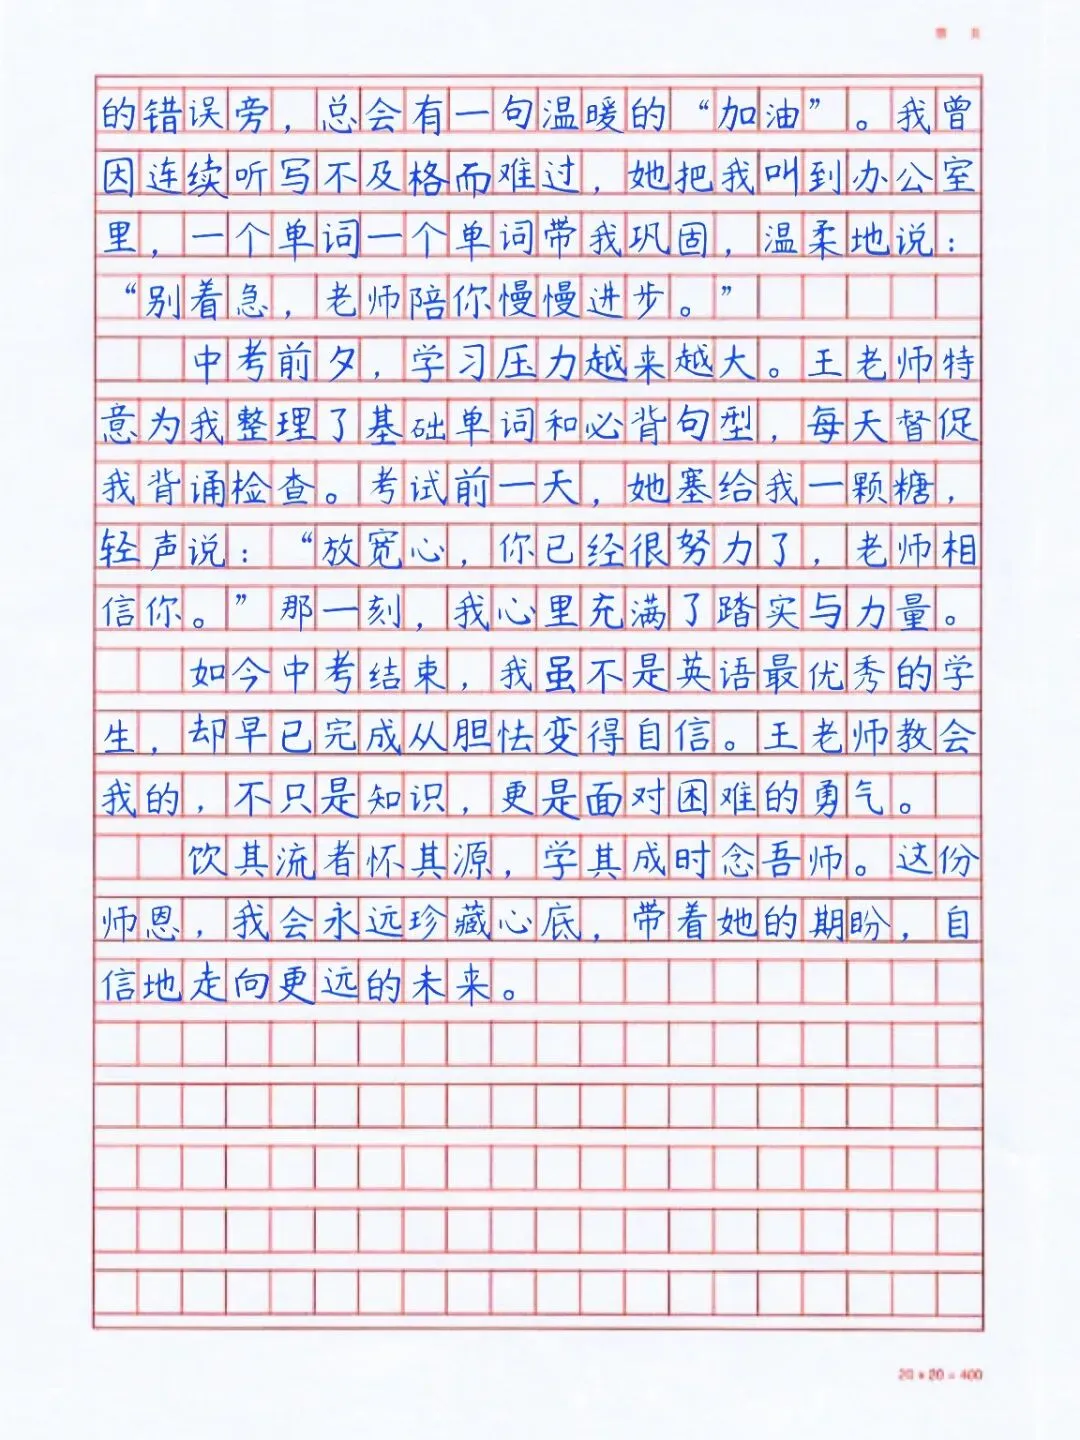 的错误旁，总会有一句温暖的“加油”。我曾
因连续听写不及格而难过，她把我叫到办公室
里，一个单词一个单词带我巩固，温柔地说：
“别着急，老师陪你慢慢进步。”
中考前夕，学习压力越来越大。王老师特
意为我整理了基础单词和必背句型，每天督促
我背诵检查。考试前一天，她塞给我一颗糖，
轻声说：“放宽心，你已经很努力了，老师相
信你。”那一刻，我心里充满了踏实与力量。
如今中考结束，我虽不是英语最优秀的学
生，却早已完成从胆怯变得自信。王老师教会
我的，不只是知识，更是面对困难的勇气。
饮其流者怀其源，学其成时念吾师。这份
师恩，我会永远珍藏心底，带着她的期盼，自
信地走向更远的未来。
20×20=400